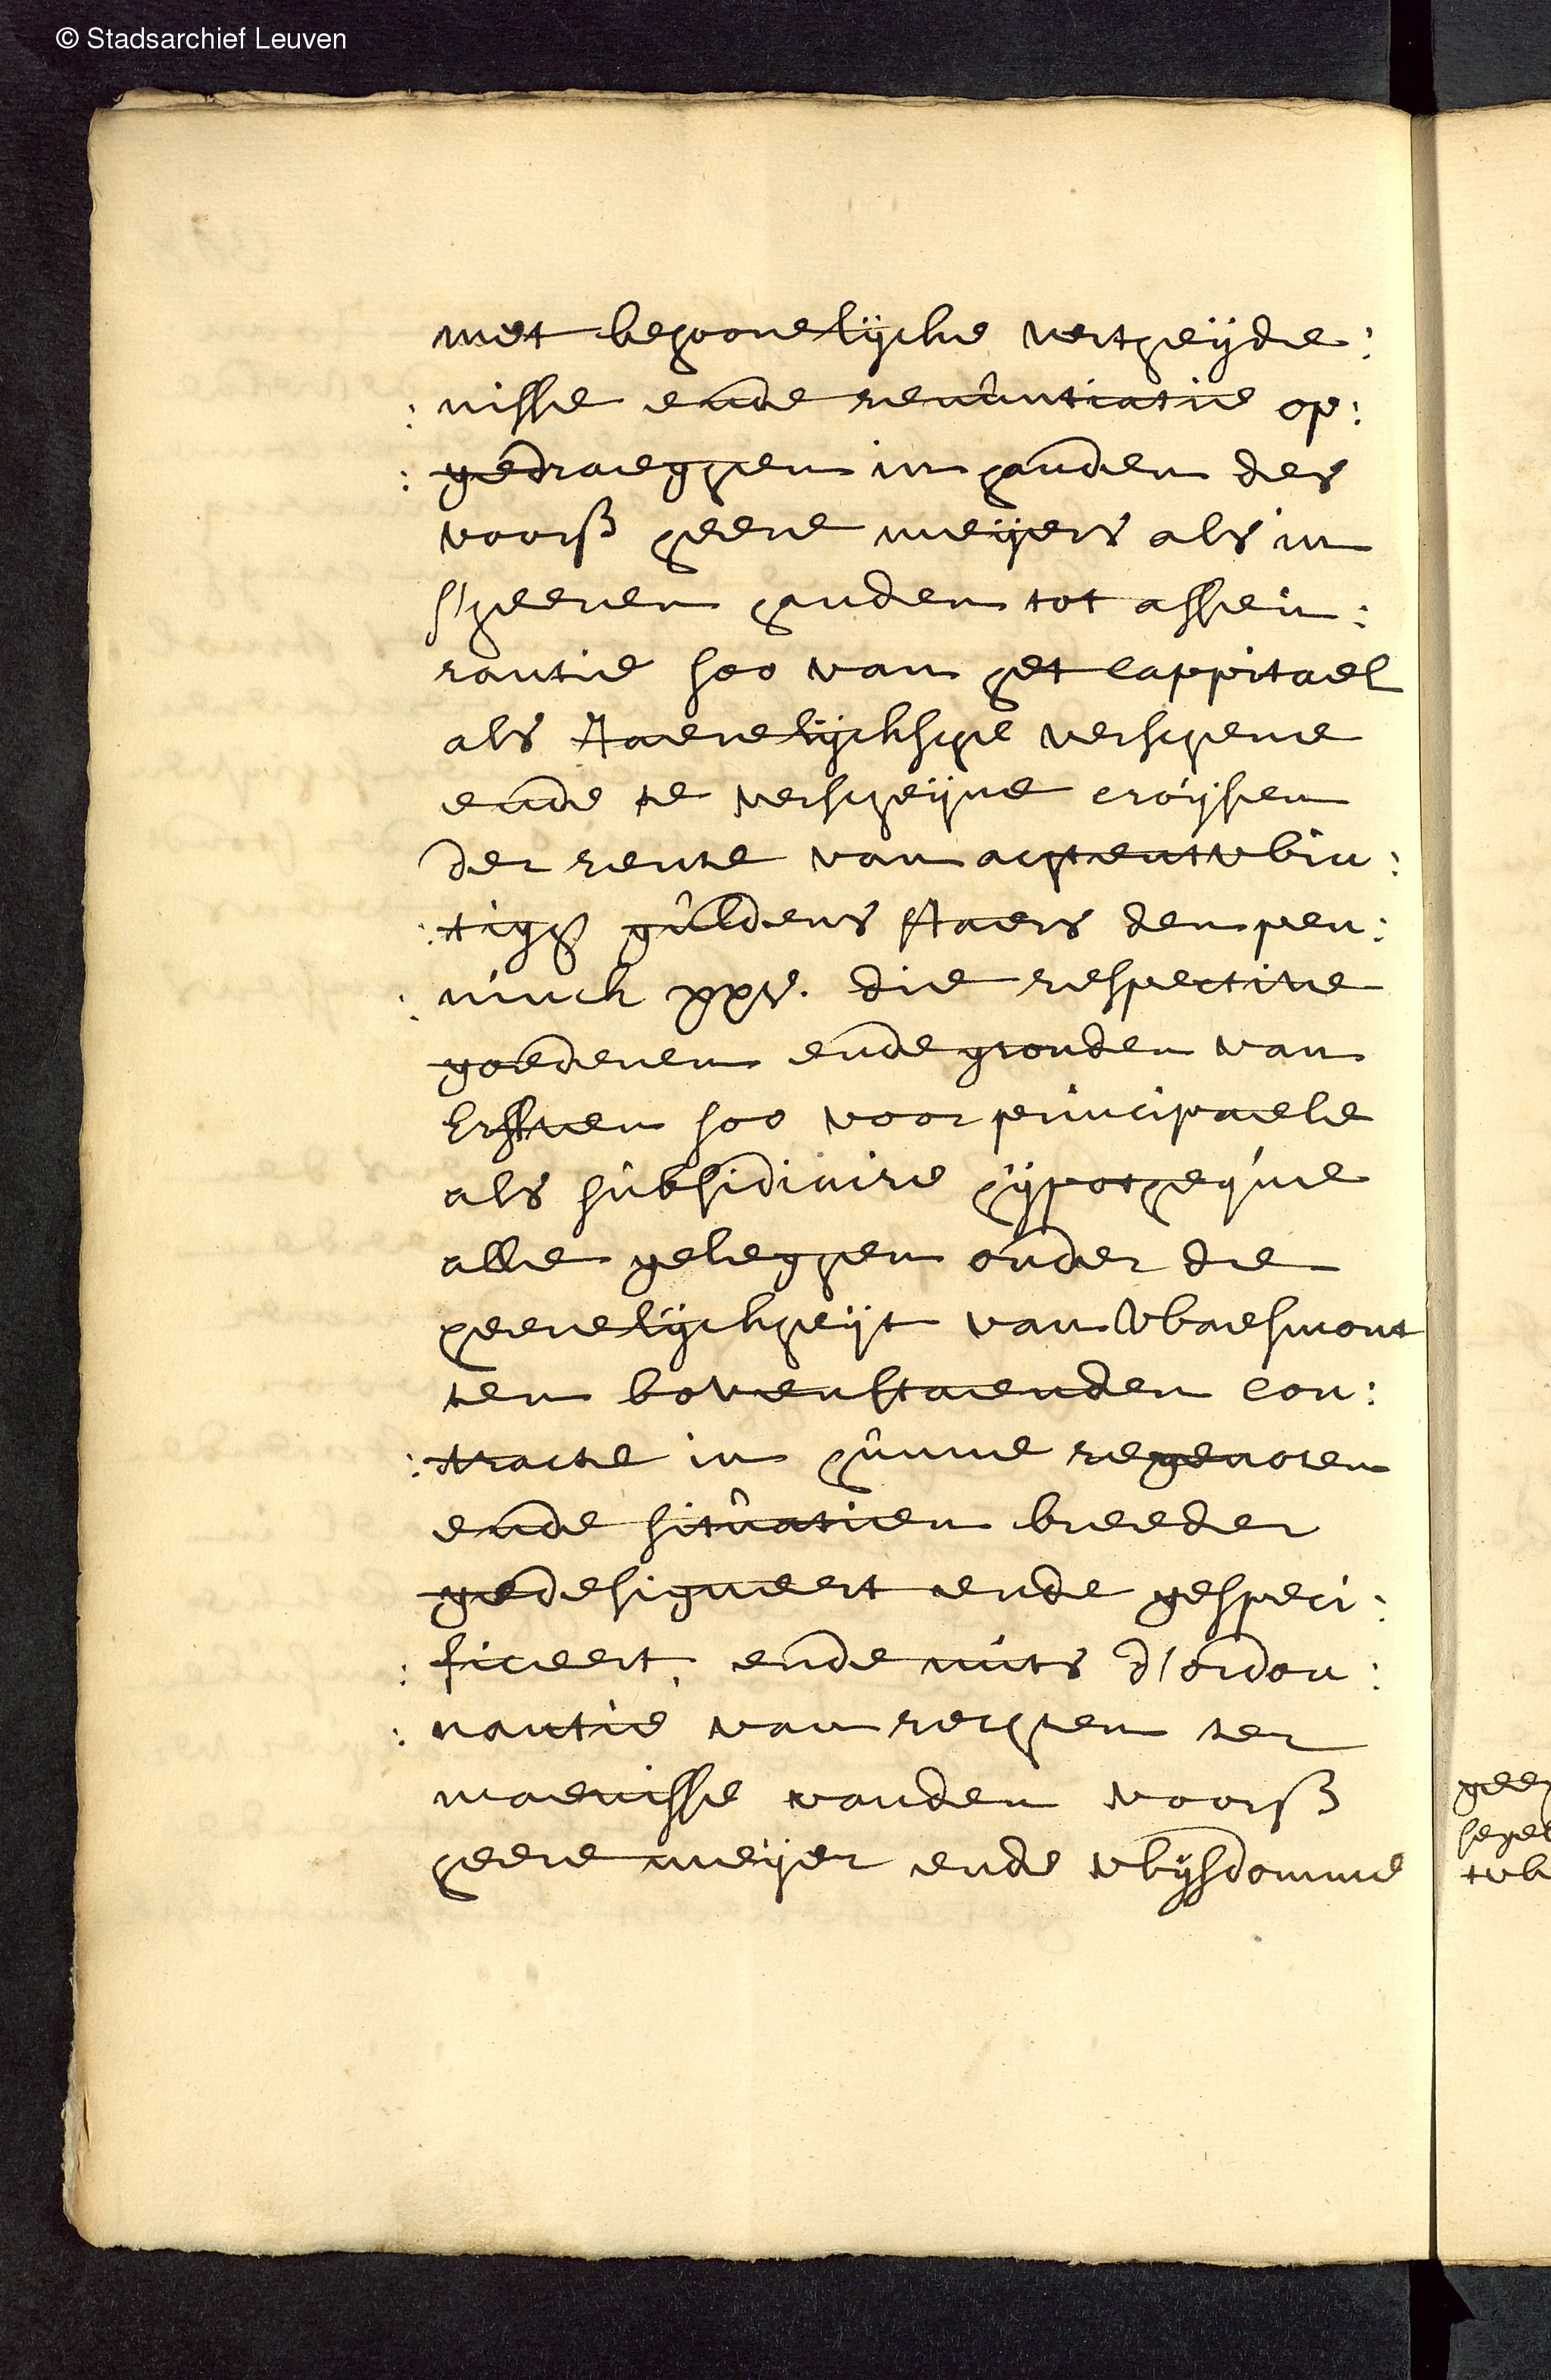 © Stadsarchief Leuven
met behoorelijcke vertheijde:
:nisse ende renûntiatie op:
:gedraegghen in handen des
voorß heere meijers als in
s'heeren handen tot asseu:
rantie soo van het cappitael
als Jaerelijckshe verschene
ende te verscheijne croijsen
der rente van achtentwin:
:tigh gûldens siaers den pen:
:ninck xxv. die respective
goederen ende gronden van
Erffven soo voor principaele
als sûbsidiaire hijpotheque
alle geleghen onder die
heerelijckheijt van Wbaesmont
ten bovenstaenden con:
:tracte in hûnne regenoten
ende sitûatien breeder
gedesigneert ende gespeci:
:ficeert, ende mits d'ordon:
:nantie van rechten ter
maenisse vanden voorß
heere meijer ende wijsdomme
hee
segel
twe